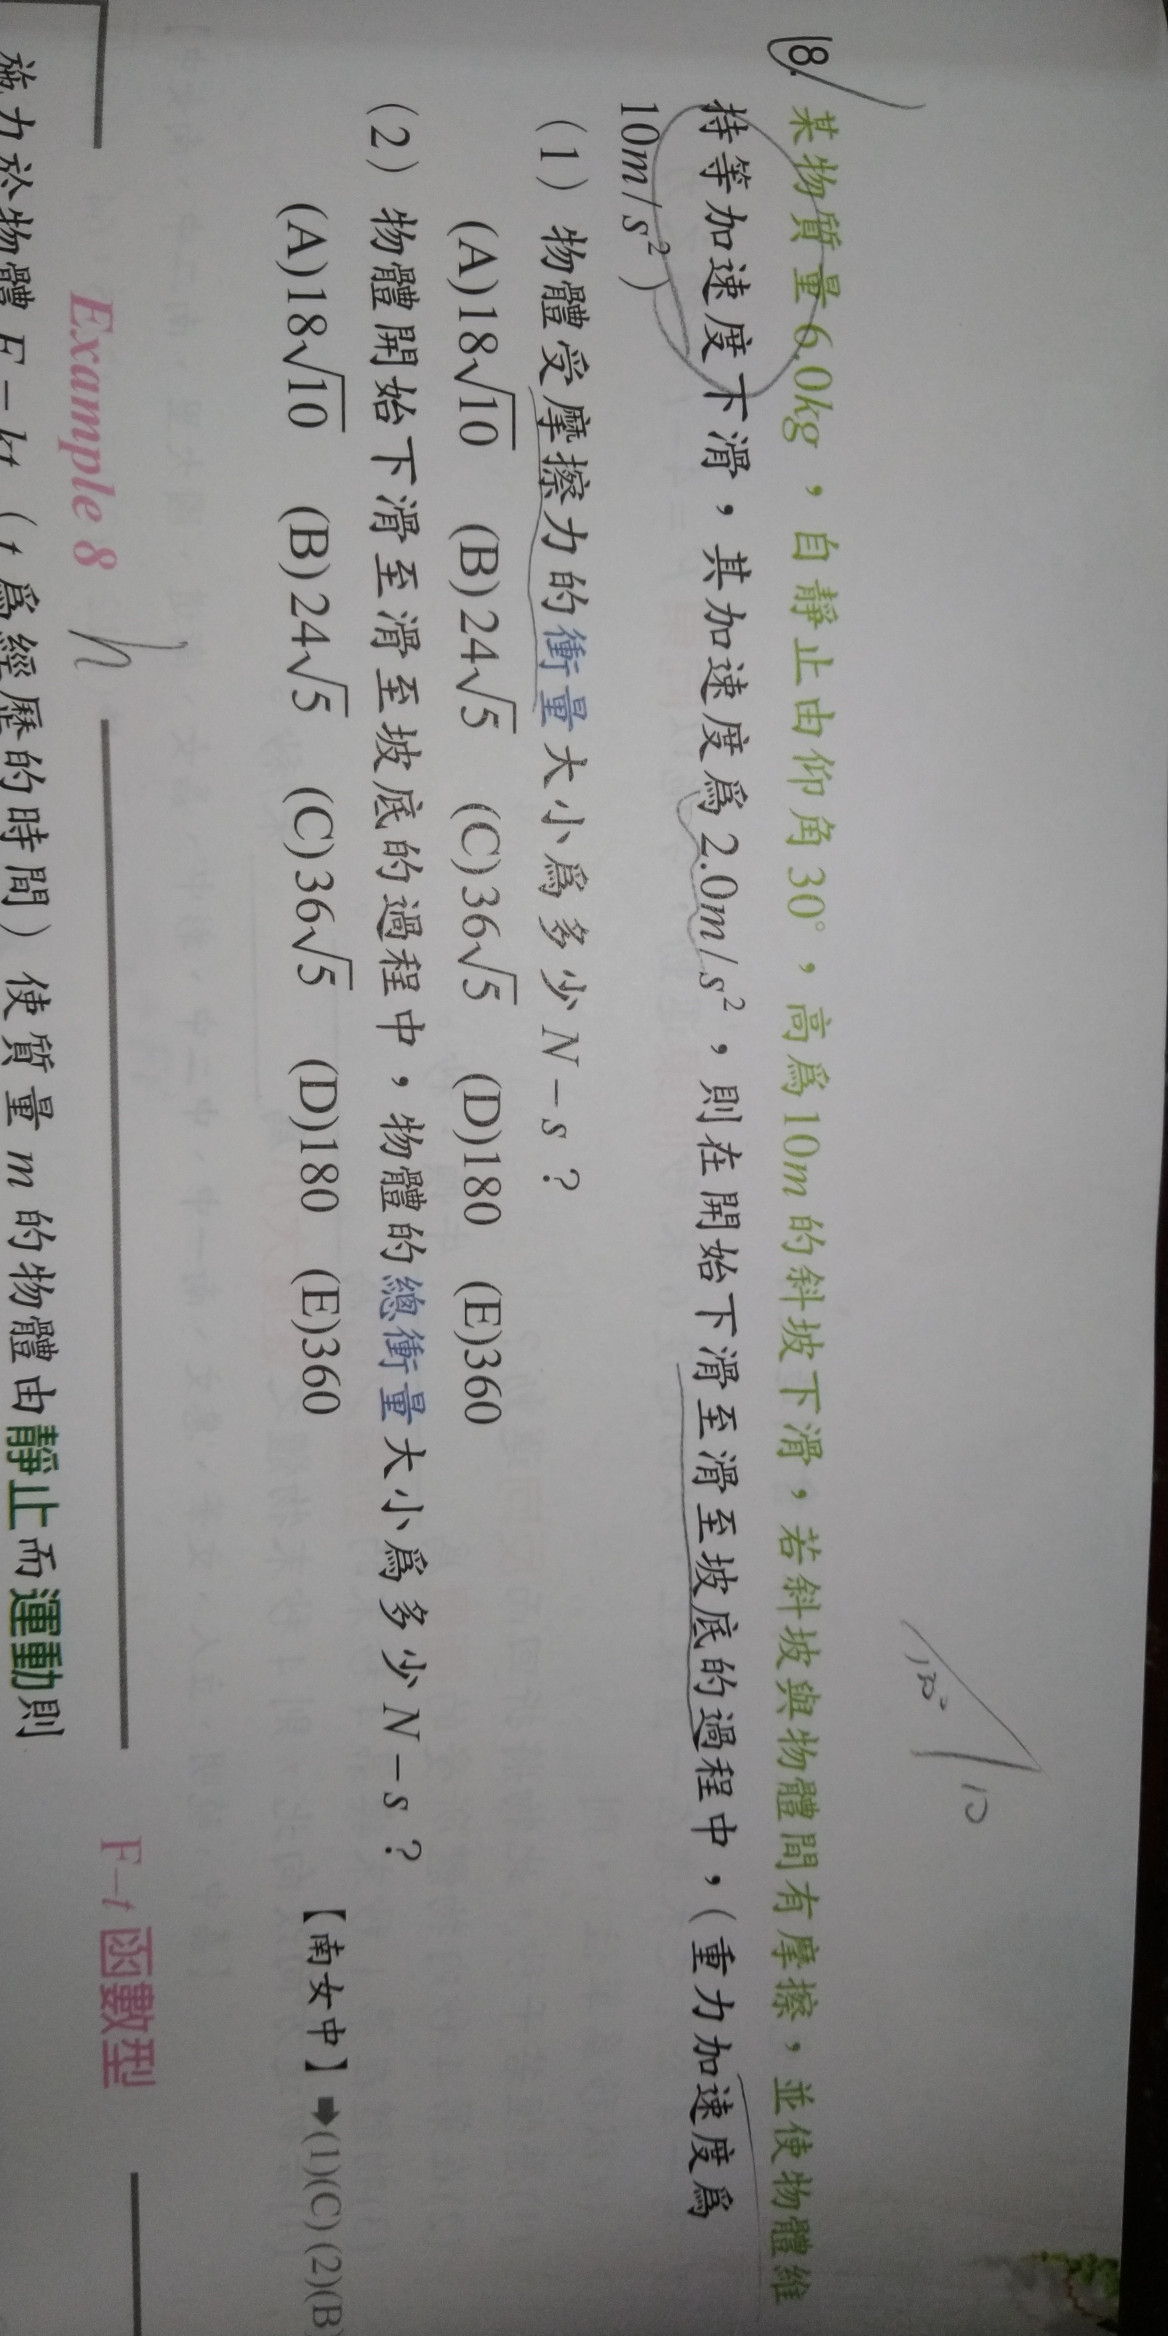 18. 某物質量6.0kg，自靜止由仰角30°，高為10m的斜坡下滑，若斜坡與物體間有摩擦，並使物體維
持等加速度下滑，其加速度為2.0m/s²，則在開始下滑至滑至坡底的過程中，（重力加速度為
10m/s²）
（1）物體受摩擦力的衝量大小為多少N－s？
(A)18√10 (B)24√5 (C)36√5 (D)180 (E)360
（2）物體開始下滑至滑至坡底的過程中，物體的總衝量大小為多少N－s？
(A)18√10 (B)24√5 (C)36√5 (D)180 (E)360
【南女中】➡(1)(C) (2)(B
Example 8
F-t函數型
施力於物體F＝kt（t為經歷的時間）使質量m的物體由靜止而運動則
10